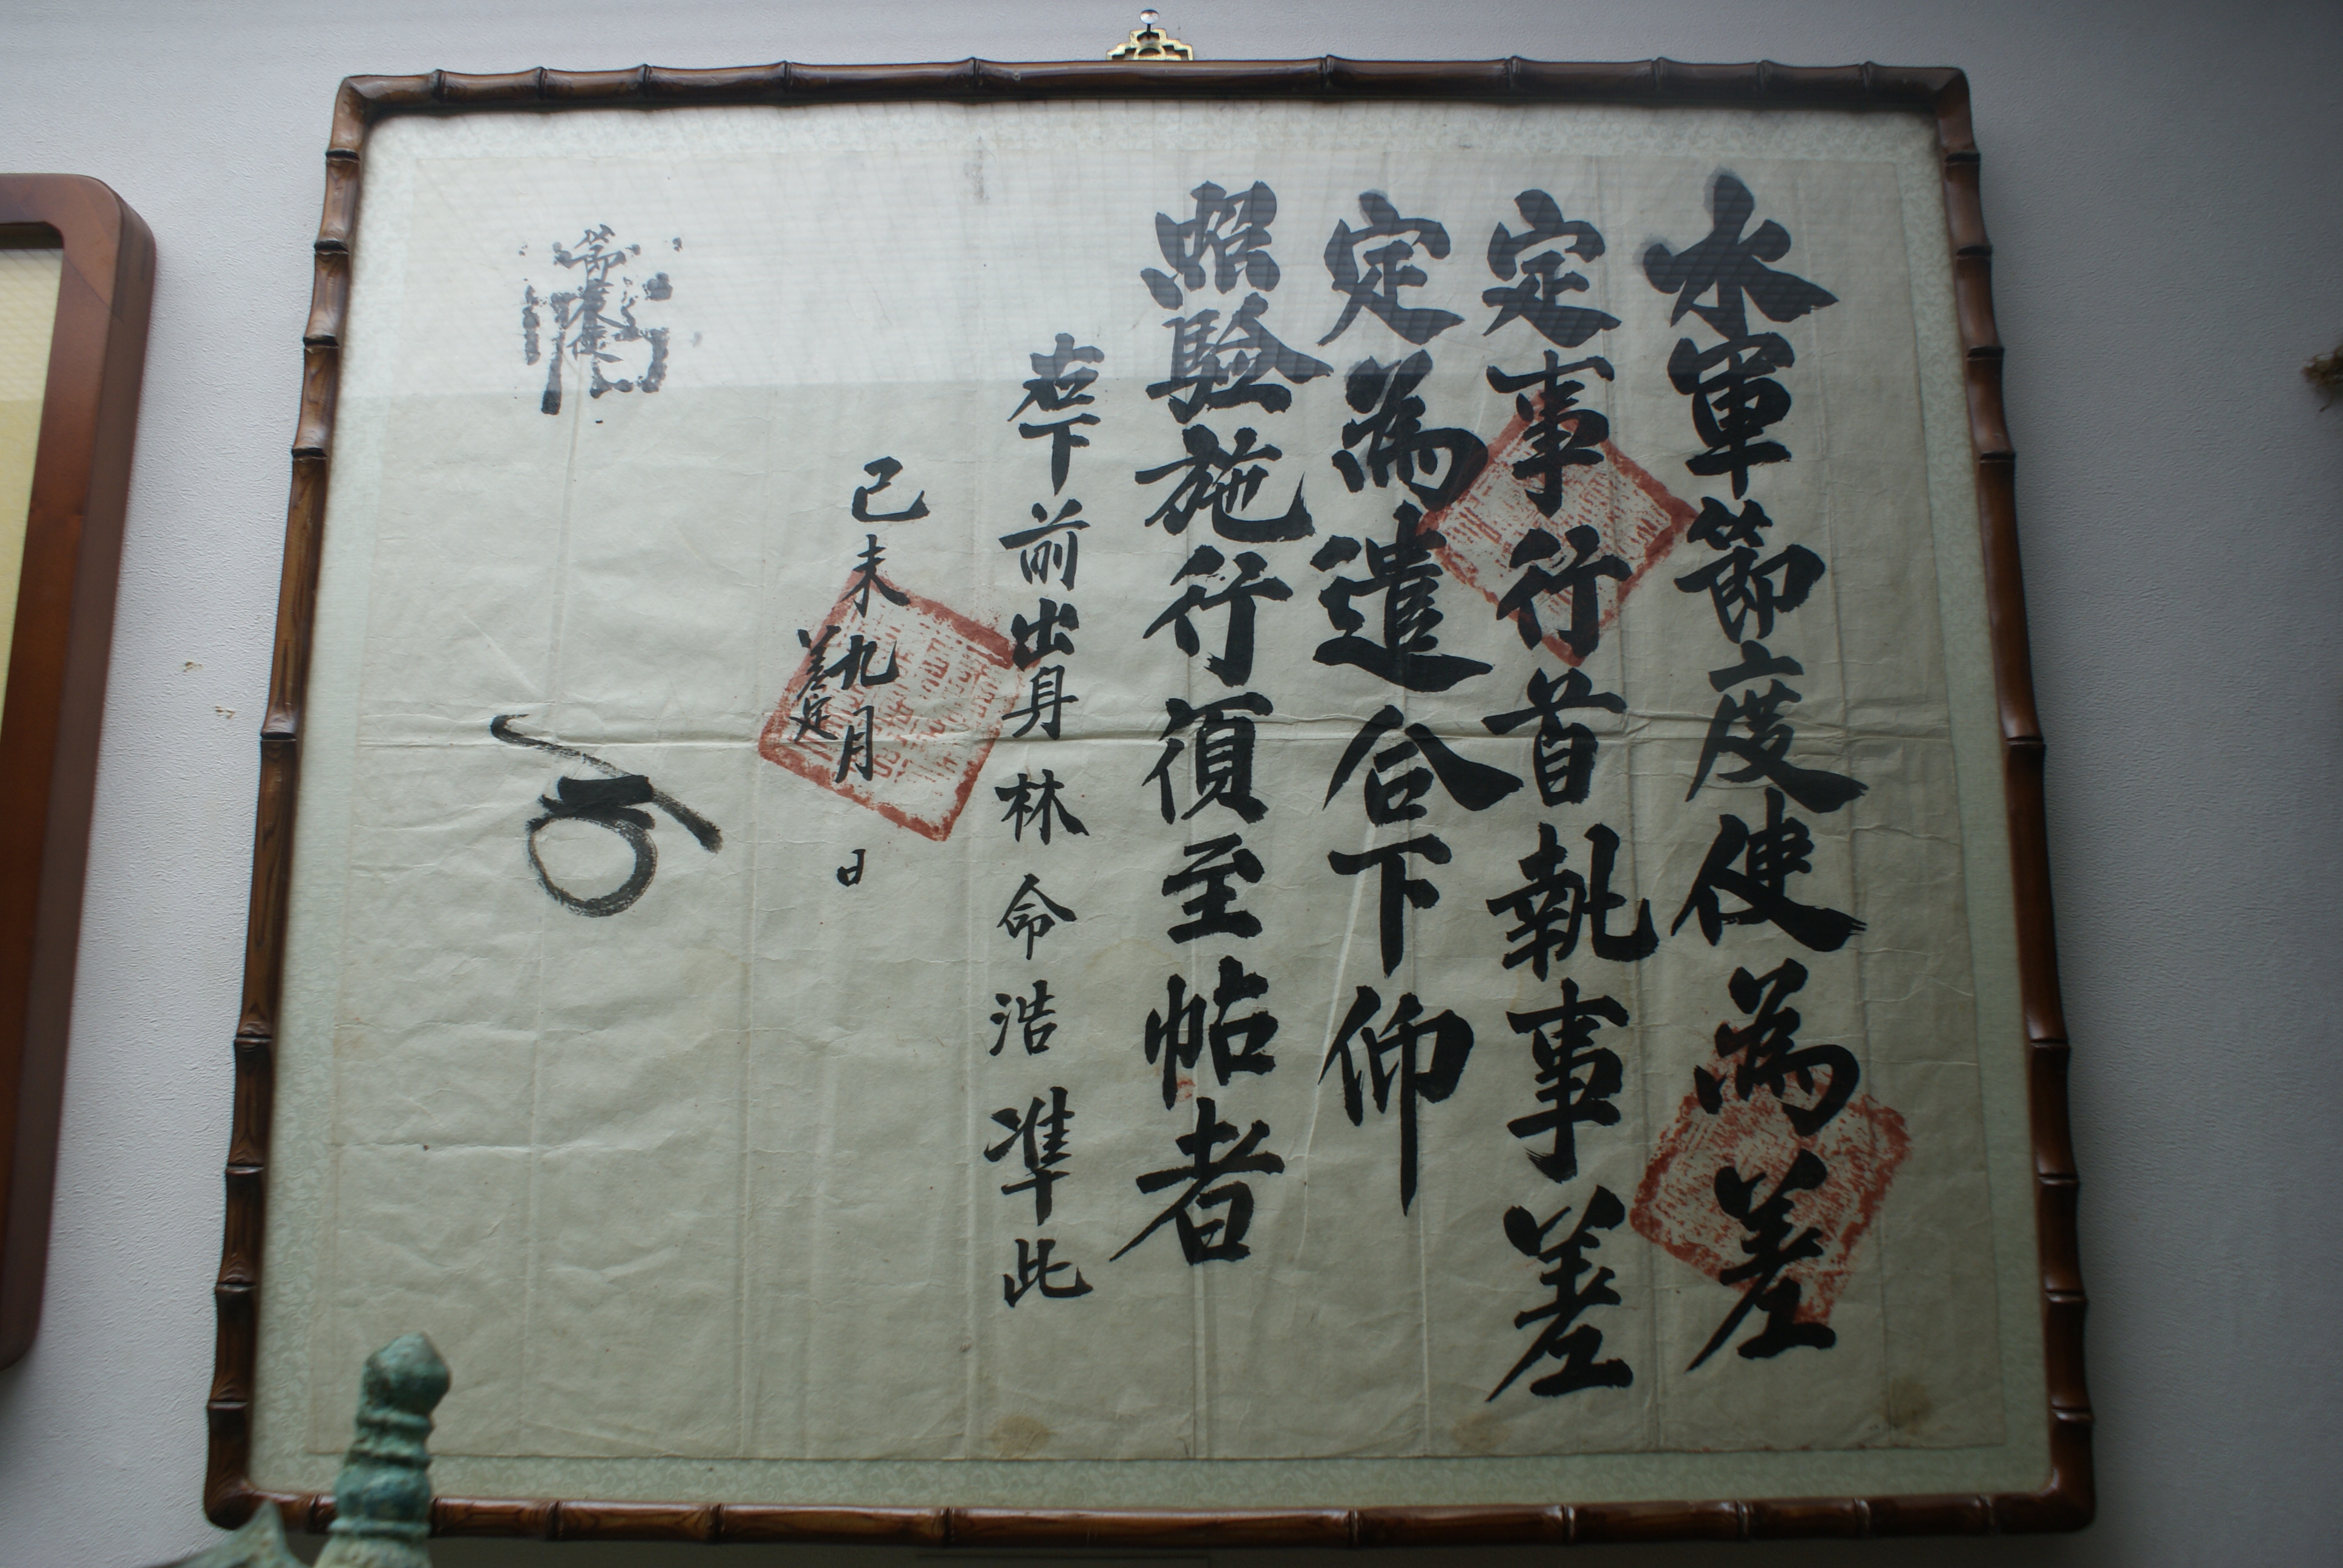 水軍節度使為差
定事行首執事差
定為遣合下仰
照驗施行湏至帖者
右下前出身林命浩準此
己未九月 日
差定